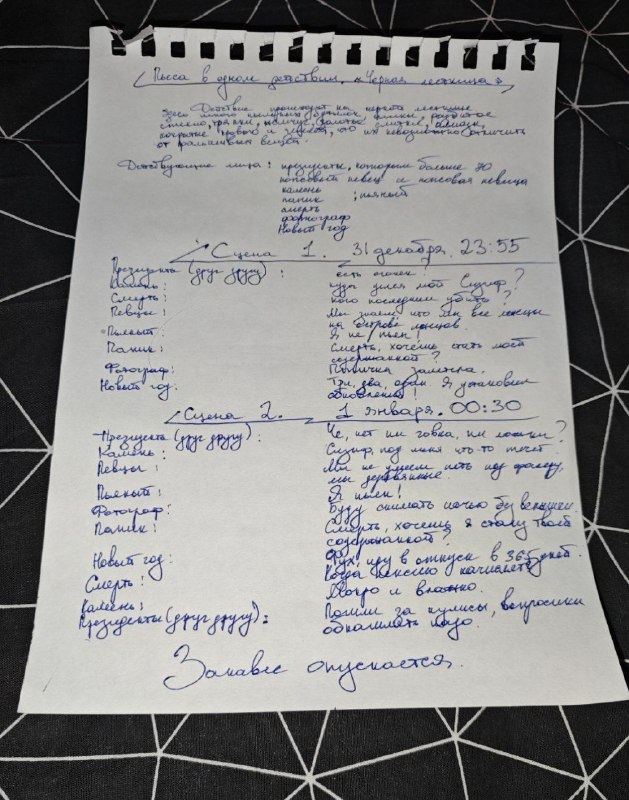 Пьеса в одном действии. «Черная лестница»
Действие происходит на черной лестнице
Здесь много пыльных бутылок, ёлки, разбитое
стекло, тряпки,
покрытие нового и зависть, что их невозможно отличить
от реальных вещей.
Действующие лица: президенты, которым больше 70
попсовый певец и попсовая певица
камень
папик ; пьяный
смерть
фотограф
Новый год
Сцена 1. 31 декабря. 23:55
Президенты (друг другу): есть огонек!
Камень: куда ушел мой Сизиф?
Смерть: кого последним убить?
Певцы: Мы знаем что мы все лжецы
на острове лжецов.
Пьяный: Я не пьян!
Папик: Смерть, хочешь стать моей
содержанкой?
Фотограф: Пленочка заметена.
Новый год: Три, два, один. Я установил
обновления!
Сцена 2. 1 января. 00:30
Президенты (друг другу): Че, нет ни говна, ни ложки?
Камень: Сизиф, под меня что-то течет.
Певцы: Мы не умеем петь под фанеру,
мы деревянные.
Пьяный: Я пьян!
Фотограф: Буду снимать ночью без вспышки.
Папик: Смерть, хочешь я стану твоей
содержанкой?
Новый год: Фух! иду в отпуск в 365 дней.
Смерть: Когда пенсию начислят?
Камень: Мокро и влажно.
Президенты (друг другу): Пошли за кулисы, вопросики
обкашлять надо.
Занавес опускается.